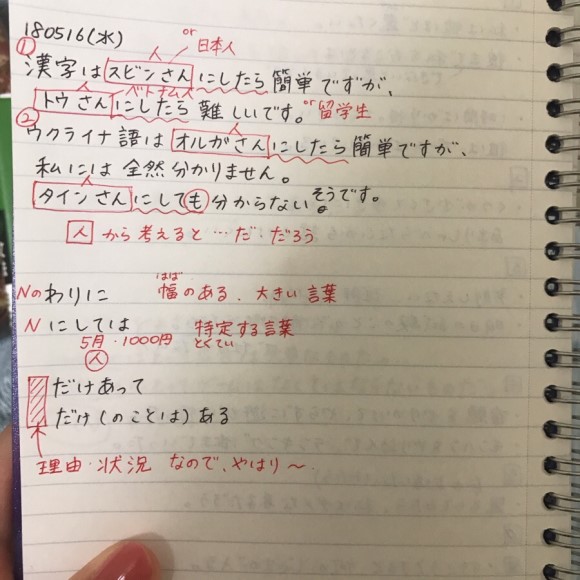 180516(水)
人 or 日本人
① 漢字はスビンさんにしたら簡単ですが、
人 ベトナム人
トウさんにしたら難しいです。or 留学生
② ウクライナ語はオルガさんにしたら簡単ですが、
私には全然分かりません。
人
タインさんにしても分からないそうです。
人 から考えると…だ・だろう
はば
Nのわりに 幅のある、大きい言葉
Nにしては 特定する言葉
5月・1000円 とくてい
人
だけあって
だけ(のことは)ある
理由・状況 なので、やはり〜